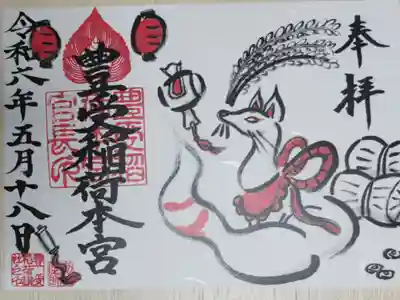 奉拝
豊受稲荷本宮
令和六年五月十八日